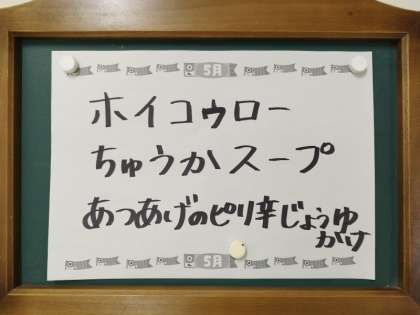 5月
ホイコゥロー
ちゅうかスープ
あつあげのピリ辛じょうゆ
かけ
5月